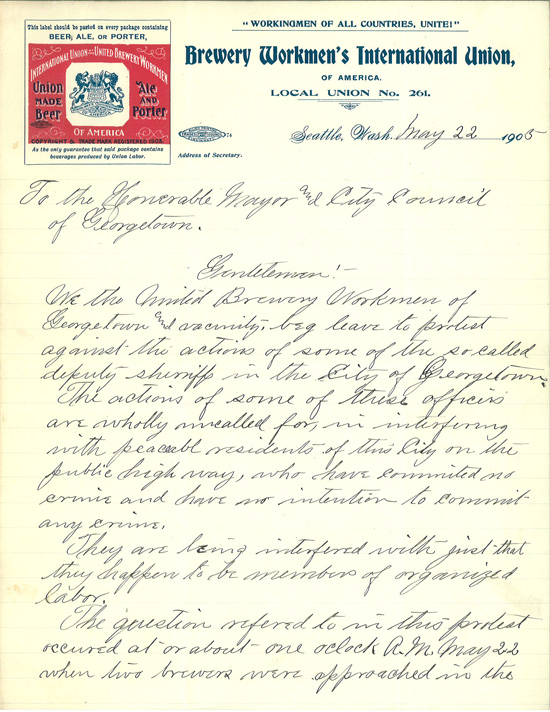 This label should be pasted on every package containing
BEER, ALE, OR PORTER,
INTERNATIONAL UNION OF THE UNITED BREWERY WORKMEN
Union
MADE
Beer
Ale
AND
Porter
OF AMERICA
COPYRIGHT & TRADE MARK REGISTERED 1903
As the only guarantee that said package contains
beverages produced by Union Labor.
"WORKINGMEN OF ALL COUNTRIES, UNITE!"
Brewery Workmen's International Union,
OF AMERICA.
LOCAL UNION No. 261.
74
Seattle, Wash. May 22 1905
Address of Secretary.
To the Honorable Mayor and City Council
of Georgetown.
Gentlemen!-
We the United Brewery Workmen of
Georgetown and vacinity, beg leave to protest
against the actions of some of the so called
deputy sherriffs in the City of Georgetown.
The actions of some of these officers
are wholly uncalled for, in interfering
with peacable residents of this City on the
public high way, who have commited no
crime and have no intention to commit
any crime.
They are being interfered with just that
they happen to be members of organized
labor.
The question refered to in this protest
occured at or about one oclock A.M. May 22
when two brewers were approached in the